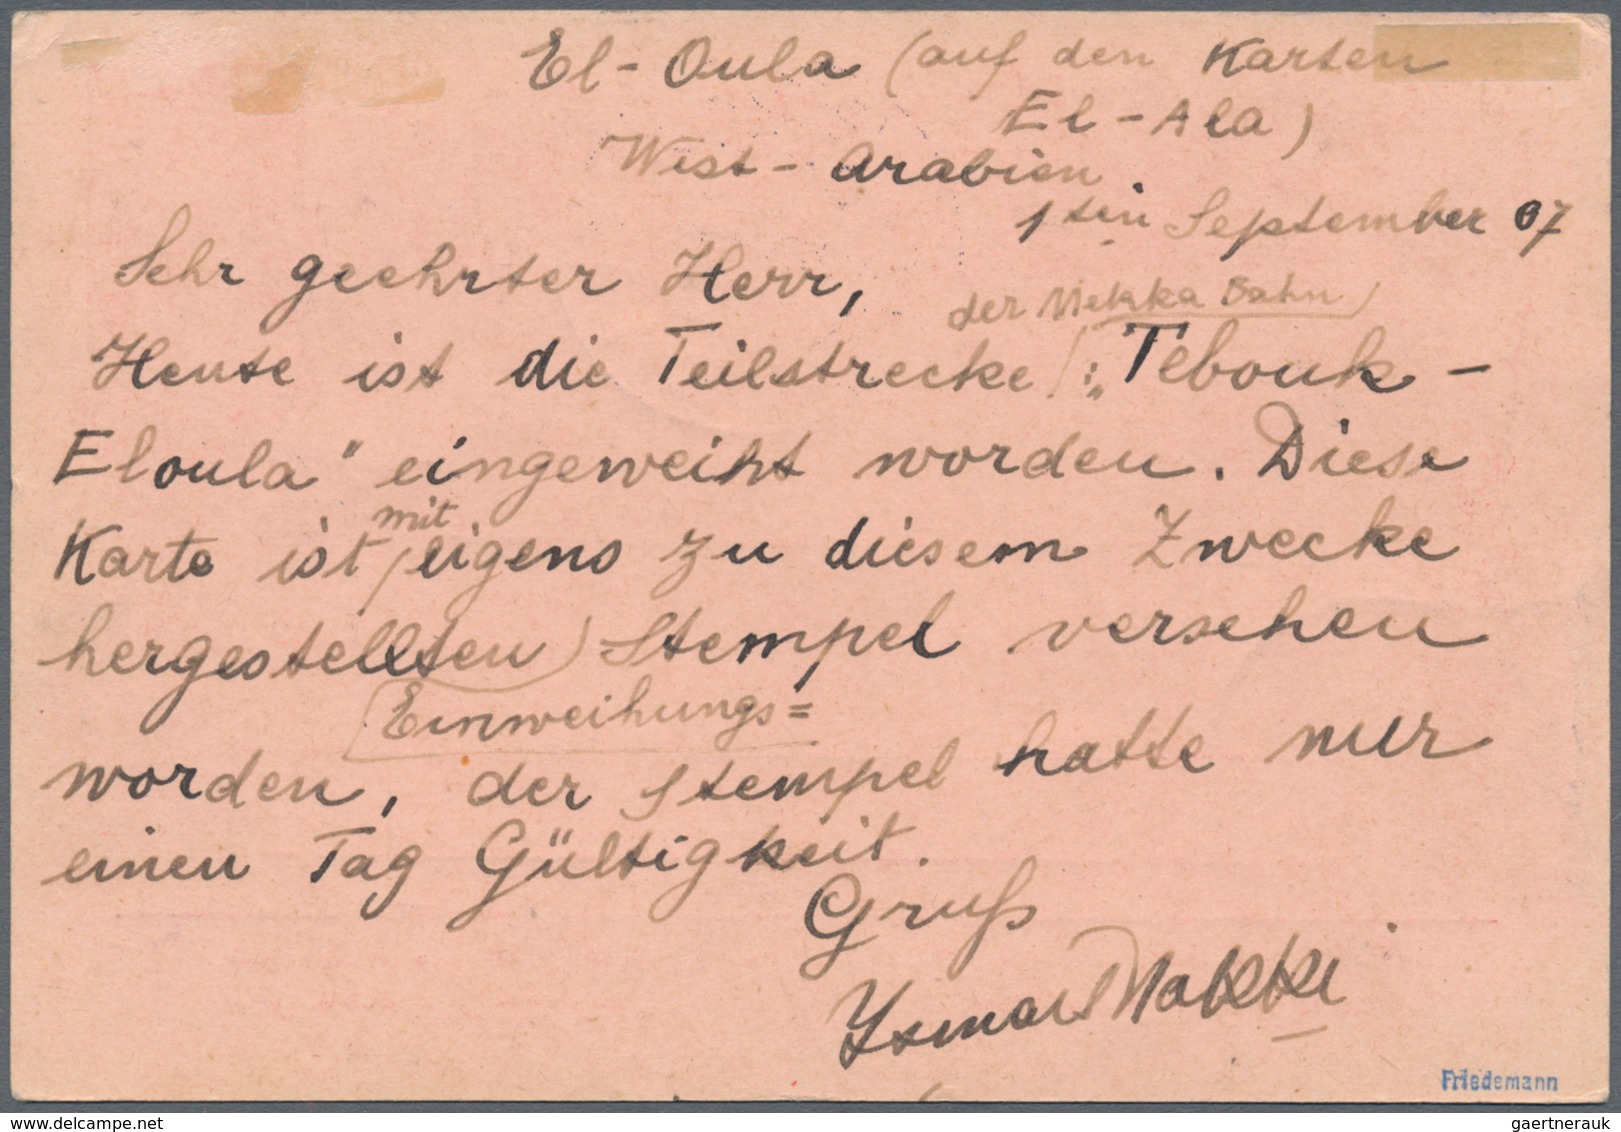 El-Oula (auf den Karten
El-Ala)
West-Arabien
1ten September 07
Sehr geehrter Herr,
der Mekka Bahn
Heute ist die Teilstrecke : „Tebouk-
Eloula" eingeweiht worden. Diese
mit
Karte ist eigens zu diesem Zwecke
hergestellten Stempel versehen
Einweihungs=
worden, der Stempel hatte nur
einen Tag Gültigkeit.
Gruß
Friedemann
gaertnerauk